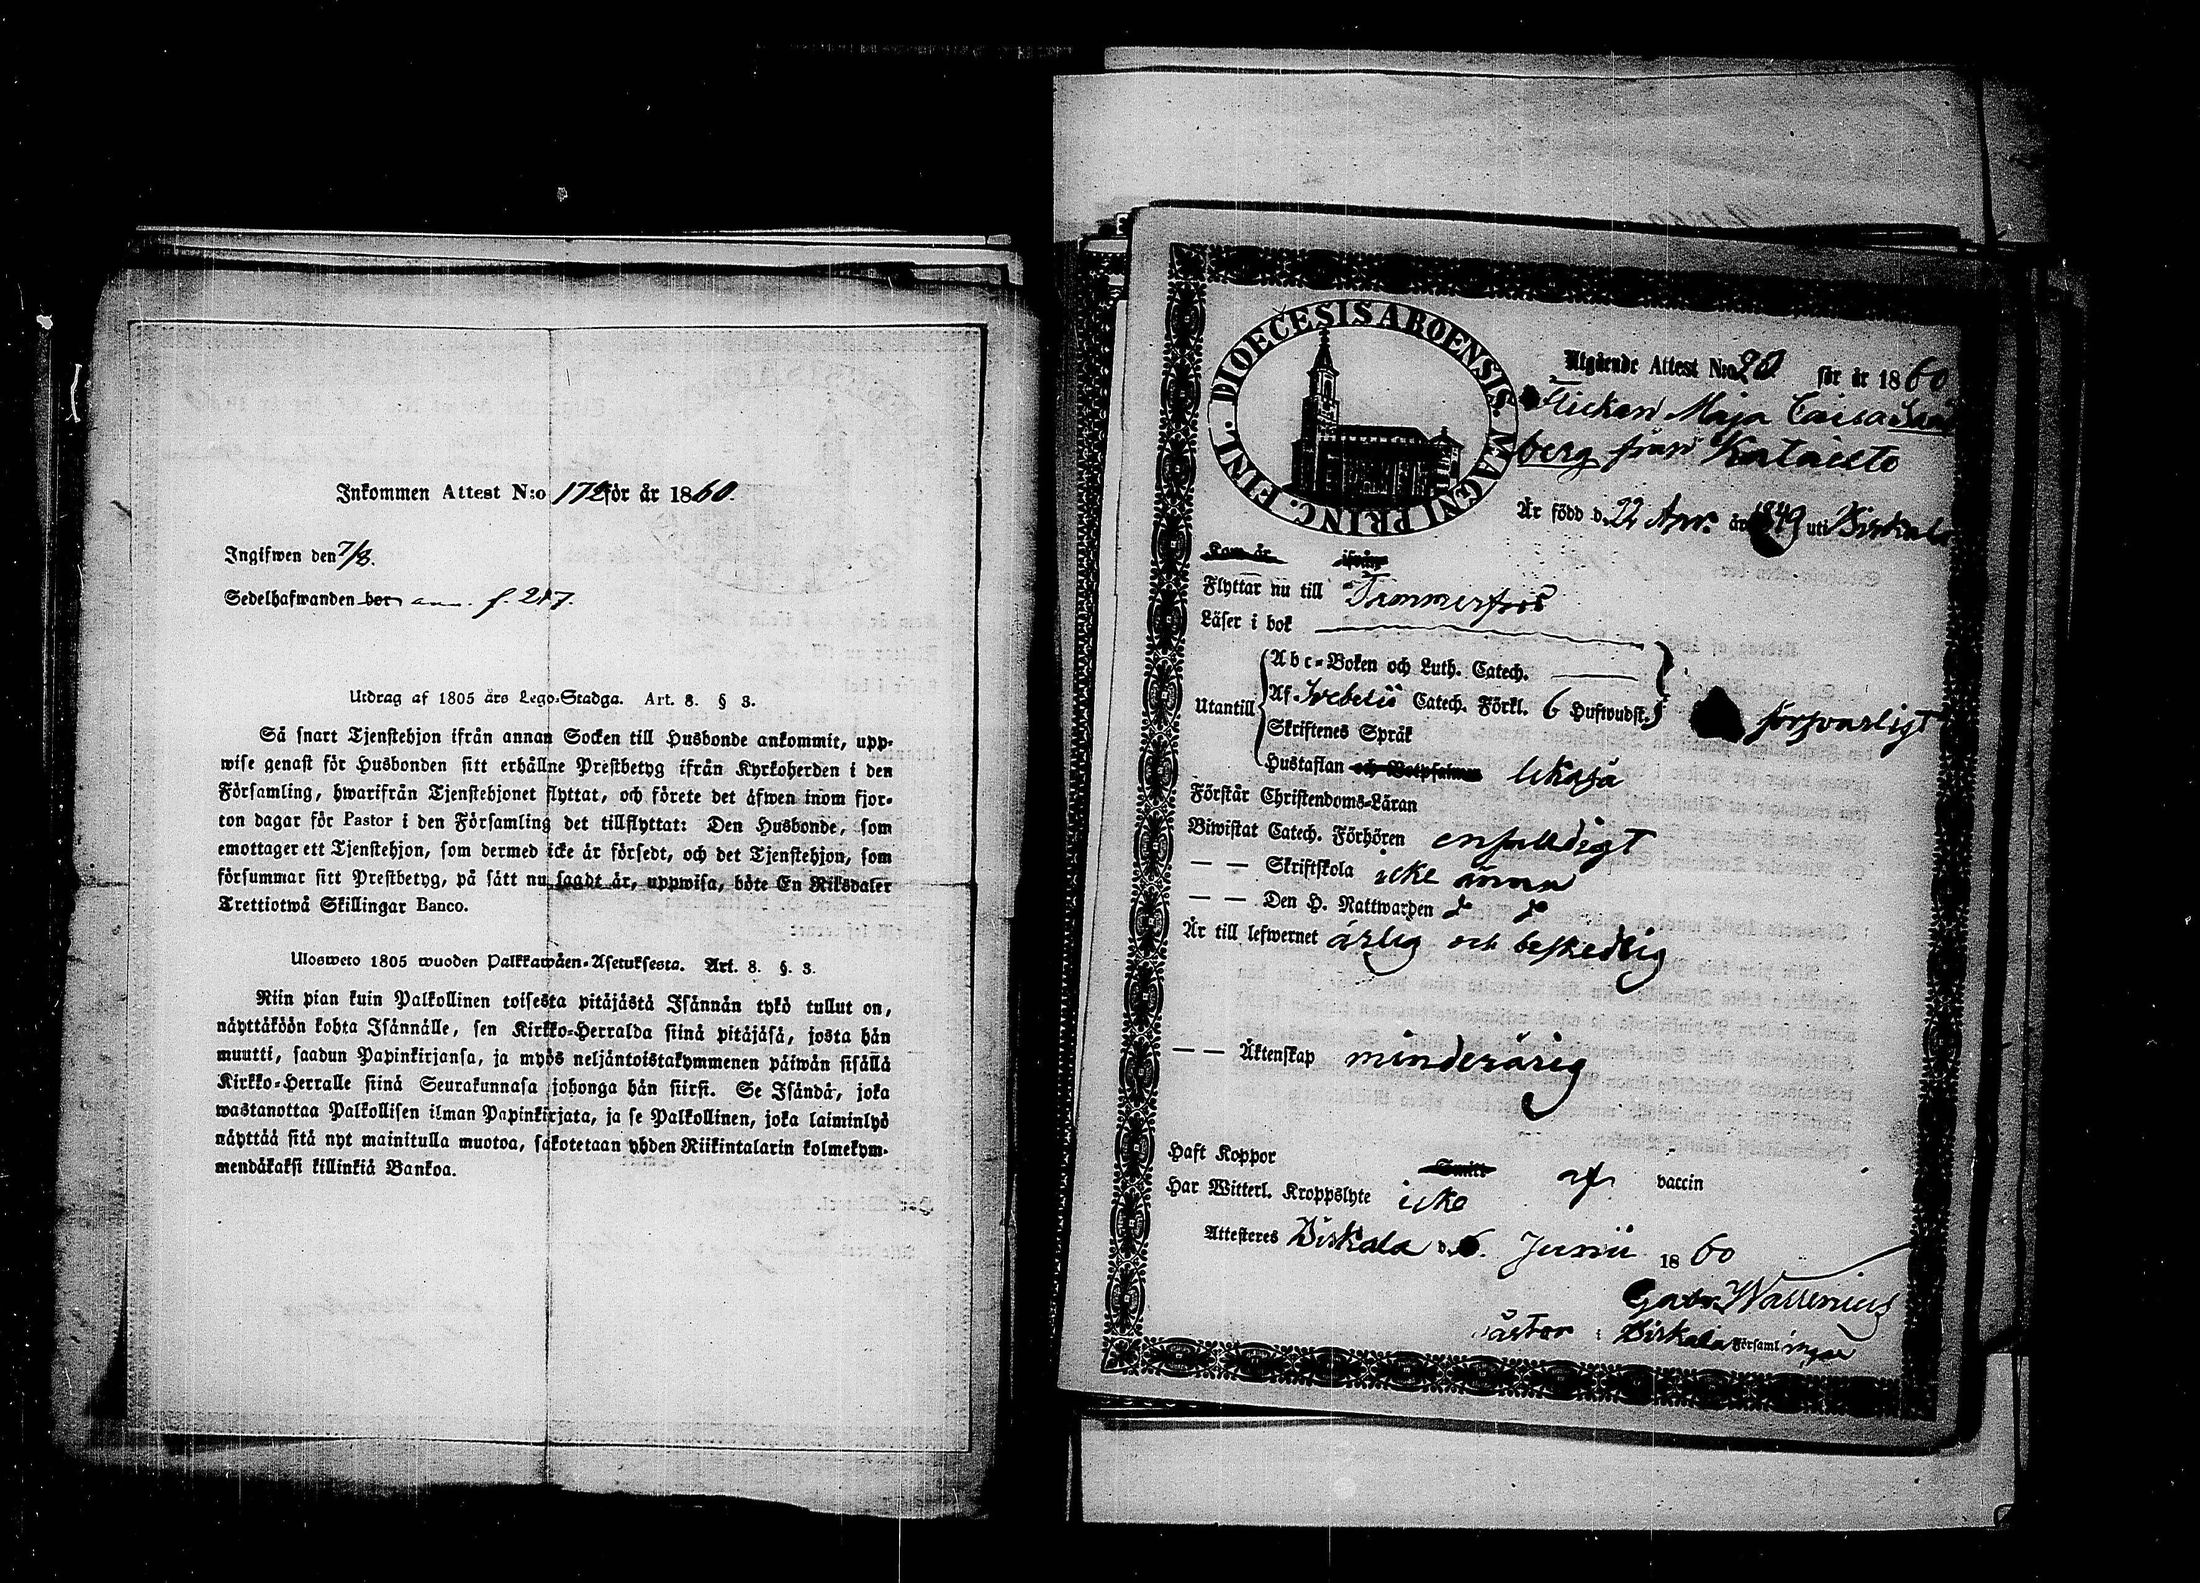 Inkommen Attest N:o 172 för år 1860.
Ingifwen den 7/8.
Sedelhafwanden bor ann. f. 217.
Utdrag af 1805 års Lego-Stadga. Art. 8. § 3.
Så snart Tjenstehjon ifrån annan Socken till Husbonde ankommit, upp-
wise genast för Husbonden sitt erhållne Prestbetyg ifrån Kyrkoherden i den
Församling, hwarifrån Tjenstehjonet flyttat, och förete det äfwen inom fjor-
ton dagar för Pastor i den Församling det tillflyttat: Den Husbonde, som
emottager ett Tjenstehjon, som dermed icke är försedt, och det Tjenstehjon, som
försummar sitt Prestbetyg, på sätt nu sagdt är, uppwisa, böte En Riksdaler
Trettiotwå Skillingar Banco.
Ulosweto 1805 wuoden Palkkawäen-Asetuksesta. Art. 8. §. 3.
Niin pian kuin Palkollinen toisesta pitäjästä Isännän tykö tullut on,
näyttäköön kohta Isännälle, sen Kirkko-Herralda siinä pitäjäsä, josta hän
muutti, saadun Papinkirjansa, ja myös neljäntoistakymmenen päiwän sisällä
Kirkko-Herralle siinä Seurakunnasa johonga hän siirsi. Se Isändä, joka
wastanottaa Palkollisen ilman Papinkirjata, ja se Palkollinen, joka laiminlyö
näyttää sitä nyt mainitulla muotoa, sakotetaan yhden Riikintalarin kolmekym-
mendäkaksi killinkiä Bankoa.
DIOECESIS ABOENSIS. MAGNI PRINC. FINL.
Utgående Attest N:o 20 för år 1860
Flickan Maja Caisa
berg från
Är född d. 22 Apr. år 1849 uti Birkala
Kom är ifrån
Flyttar nu till Tammerfors
Läser i bok
Abc-Boken och Luth. Catech.
Utantill Af Svebelii Catech. Förkl. 6 Hufwudst. försvarligt
Skriftenes Språk
Hustaflan och Botpsalmen likaså
Förstår Christendoms-Läran
Biwistat Catech. Förhören enfaldigt
— — Skriftskola icke ännu
— — Den H. Nattwarden
Är till lefwernet ärlig och beskedlig
— — Äktenskap minderårig
Haft Koppor Smitt af vaccin
Har Witterl. Kroppslyte icke
Attesteres Birkala d. 6. Junii 1860
Gabr. Wallenius
Pastor i Birkala Församlingar